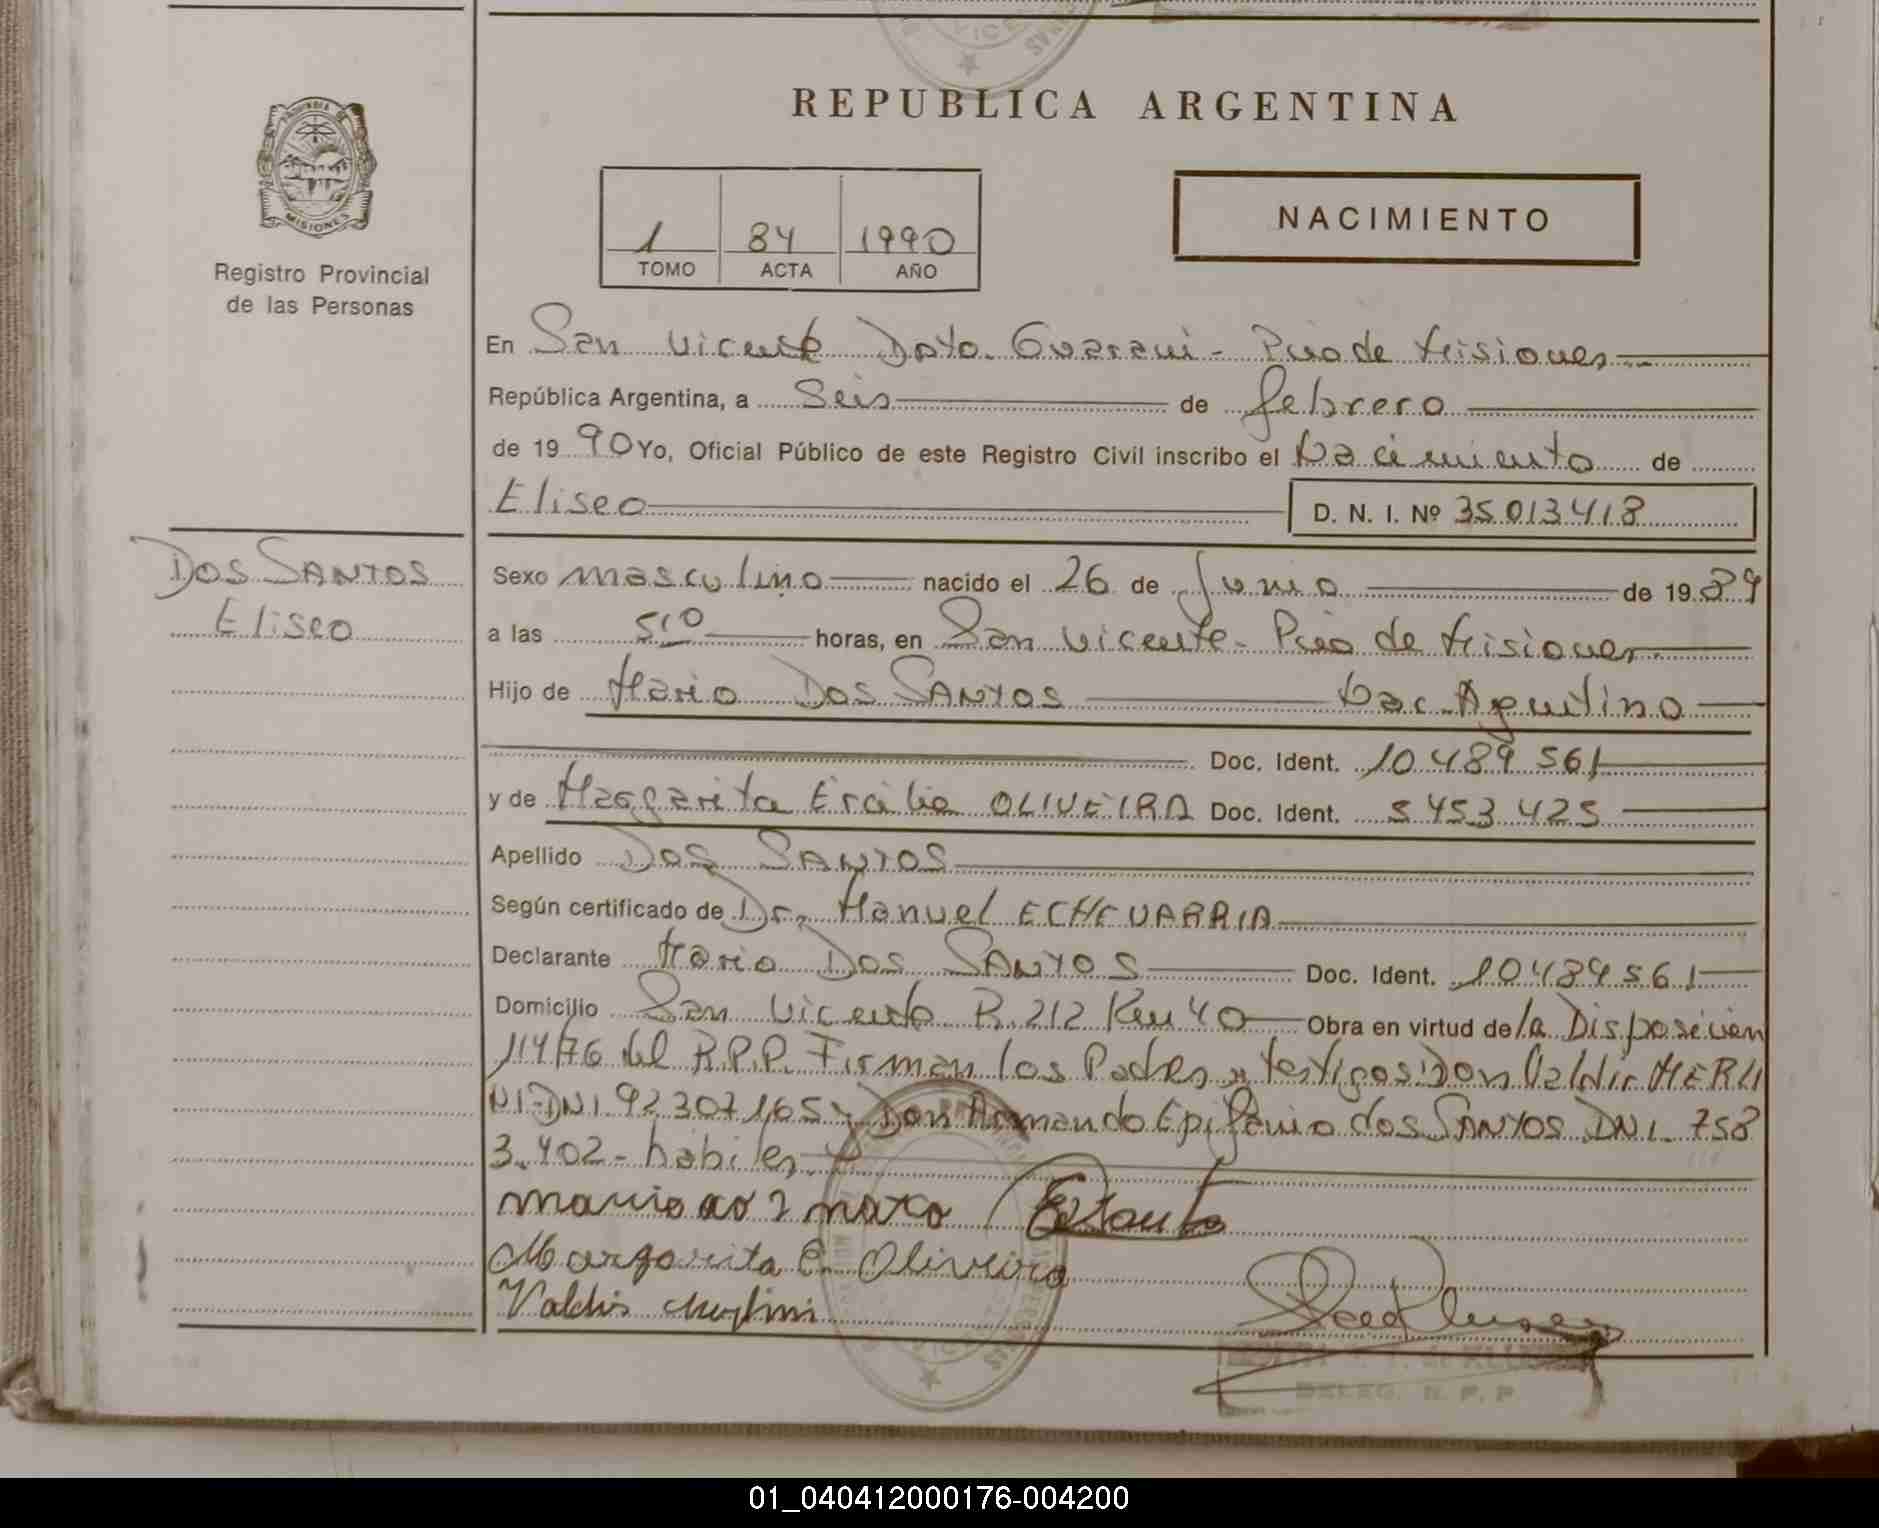 REPUBLICA ARGENTINA
MISIONES
Registro Provincial
de las Personas
1 84 1990
TOMO ACTA AÑO
NACIMIENTO
En San Vicente Dpto. Guarani - Pcia de Misiones
República Argentina, a Seis de febrero
de 19 90 Yo, Oficial Público de este Registro Civil inscribo el Nacimiento de
Eliseo D. N. I. Nº 35013418
DOS SANTOS
Eliseo
Sexo masculino nacido el 26 de Junio de 19 89
a las 5,10 horas, en San Vicente - Pcia de Misiones
Hijo de Mario DOS SANTOS Nac. Agentino
Doc. Ident. 10 489 561
y de Margarita Ercilia OLIVEIRA Doc. Ident. 5 453 425
Apellido DOS SANTOS
Según certificado de Dr. Manuel ECHEVARRIA
Declarante Mario DOS SANTOS Doc. Ident. 10489561
Domicilio San Vicente R. 212 Km 40 Obra en virtud de la Disposicion
114/76 del R.P.P. Firman los Padres y testigos: Don Valdir MERLI
NI - DNI 92 307 165 y Don Armando Epifanio dos SANTOS DNI. 758
3.402 - habiles.
Margarita E. Oliveira
Valdir Merlini
DELEG. R. P. P.
01_040412000176-004200